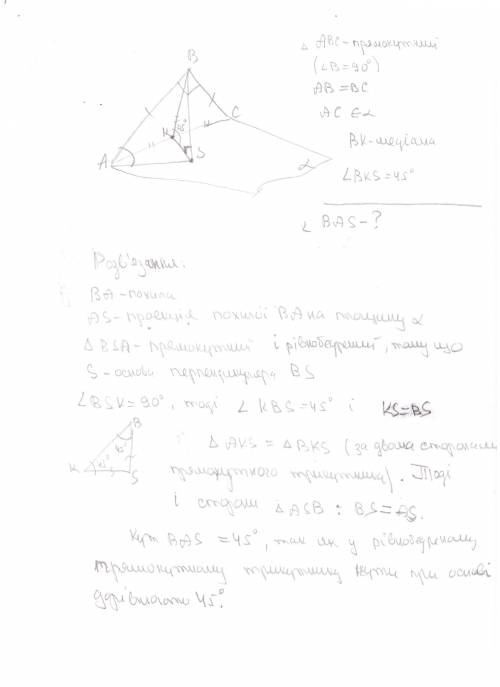 B
C
K
45°
S
A
α
△ ABC - прямокутний
(∠B = 90°)
AB = BC
AC ∈ α
BK - медіана
∠BKS = 45°
∠ BAS - ?
Розв'язання:
BA - похила
AS - проекція похилої BA на площину α
△ BSA - прямокутний і рівнобедрений, тому що
S - основа перпендикуляра BS
∠BSK = 90°, тоді ∠ KBS = 45° і KS = BS
B
45°
K 45° S
△ AKS = △ BKS (за двома сторонами
прямокутного трикутника). Тоді
і сторони △ ASB : BS = AS.
Кут BAS = 45°, так як у рівнобедреному
прямокутному трикутнику кути при основі
дорівнюють 45°.